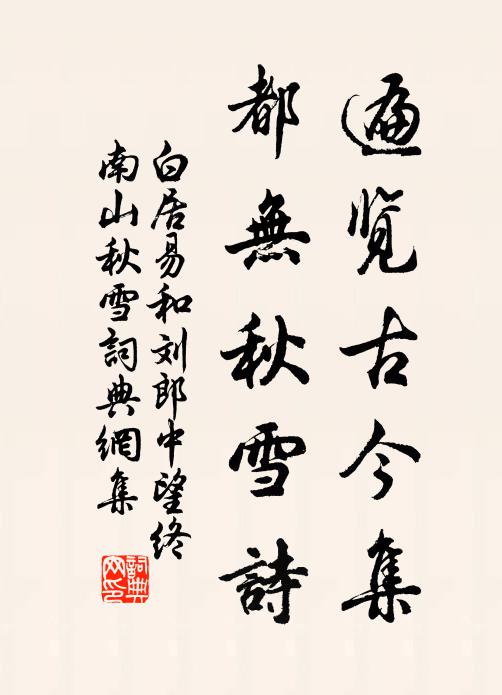 遍览古今集
都無秋雪詩
白居易和刘郎中望终
南山秋雪詞典網集
詞典
网印